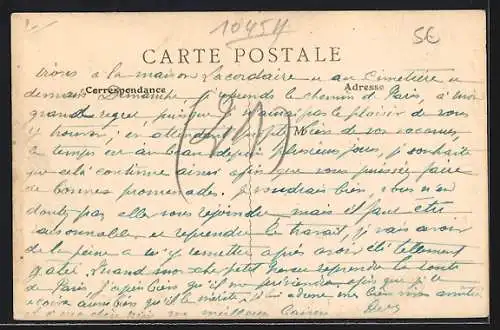 10454
5E
CARTE POSTALE
à la maison Lacordaire au Cimetière
Correspondance
Adresse
demain Dimanche je reprends le chemin de Paris, à mon
grand regret, puisque je n'aurai pas le plaisir de vous
y trouver; en attendant bien de vos vacances,
le temps est au beau depuis plusieurs jours, je souhaite
M
que cela continue ainsi afin que vous puissiez faire
de bonnes promenades. Je voudrais bien, vous n'en
doutez pas aller vous rejoindre mais il faut être
raisonnable et reprendre le travail, je vais avoir
de la peine à m'y remettre après avoir été tellement
gâté. Quand mon cher petit reprendre la route
de Paris, j'espère bien qu'il me préviendra afin que je
bien qu'il le mérite, bien mon amitié
meilleurs baisers